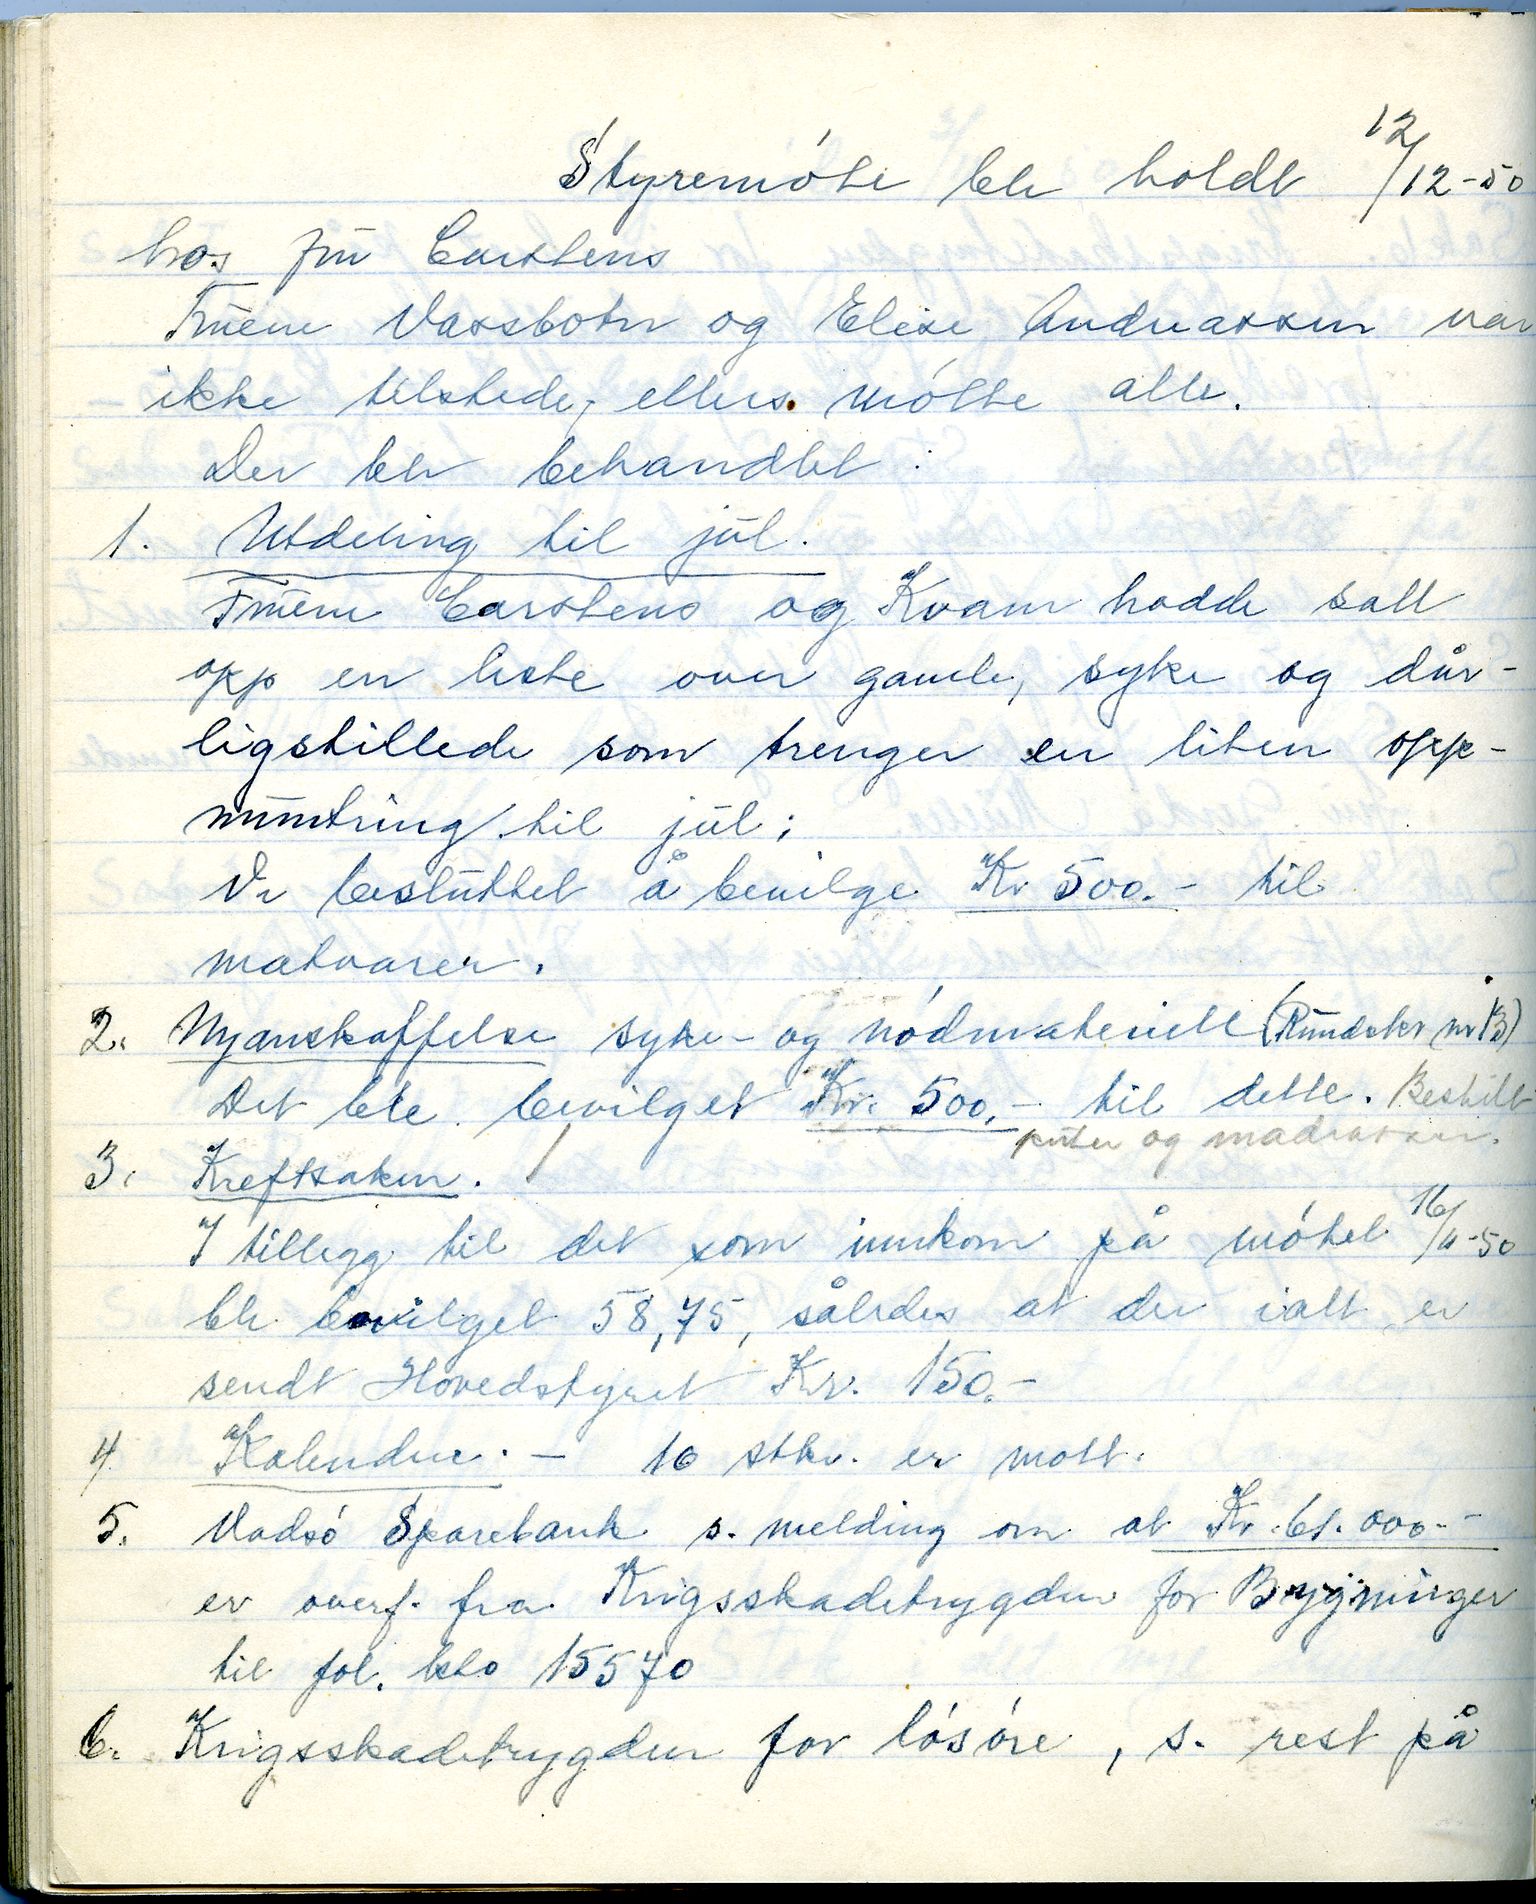 Styremöte ble holdt 12/12-50
hos fru Carstens
Fruene Vassbotn og Elise Andreassen var
ikke tilstede, ellers mötte alle.
Der ble behandlet :
1. Utdeling til jul.
Fruene Carstens og Kvam hadde satt
opp en liste over gamle, syke og dår-
ligstillede som trenger en liten opp-
muntring til jul;
Vi besluttet å bevilge Kr 500.- til
matvarer.
2. Nyanskaffelse syke- og nödmateriell (Rundskr nr 13)
Det ble bevilget Kr. 500.- til dette. Bestilt
puter og madrasser.
3. Kreftsaken.
I tillegg til det som innkom på mötet 16/11-50
ble bevilget 58,75, således at der ialt er
sendt Hovedstyret Kr. 150.-
4 Kalendere. - 10 stkr. er mott.
5. Vadsö Sparebank s. melding om at Kr. 61.000.-
er overf. fra Krigsskadetrygden for Bygninger
til fol. kto 15570
6. Krigsskadetrygden for lösöre, s. rest på